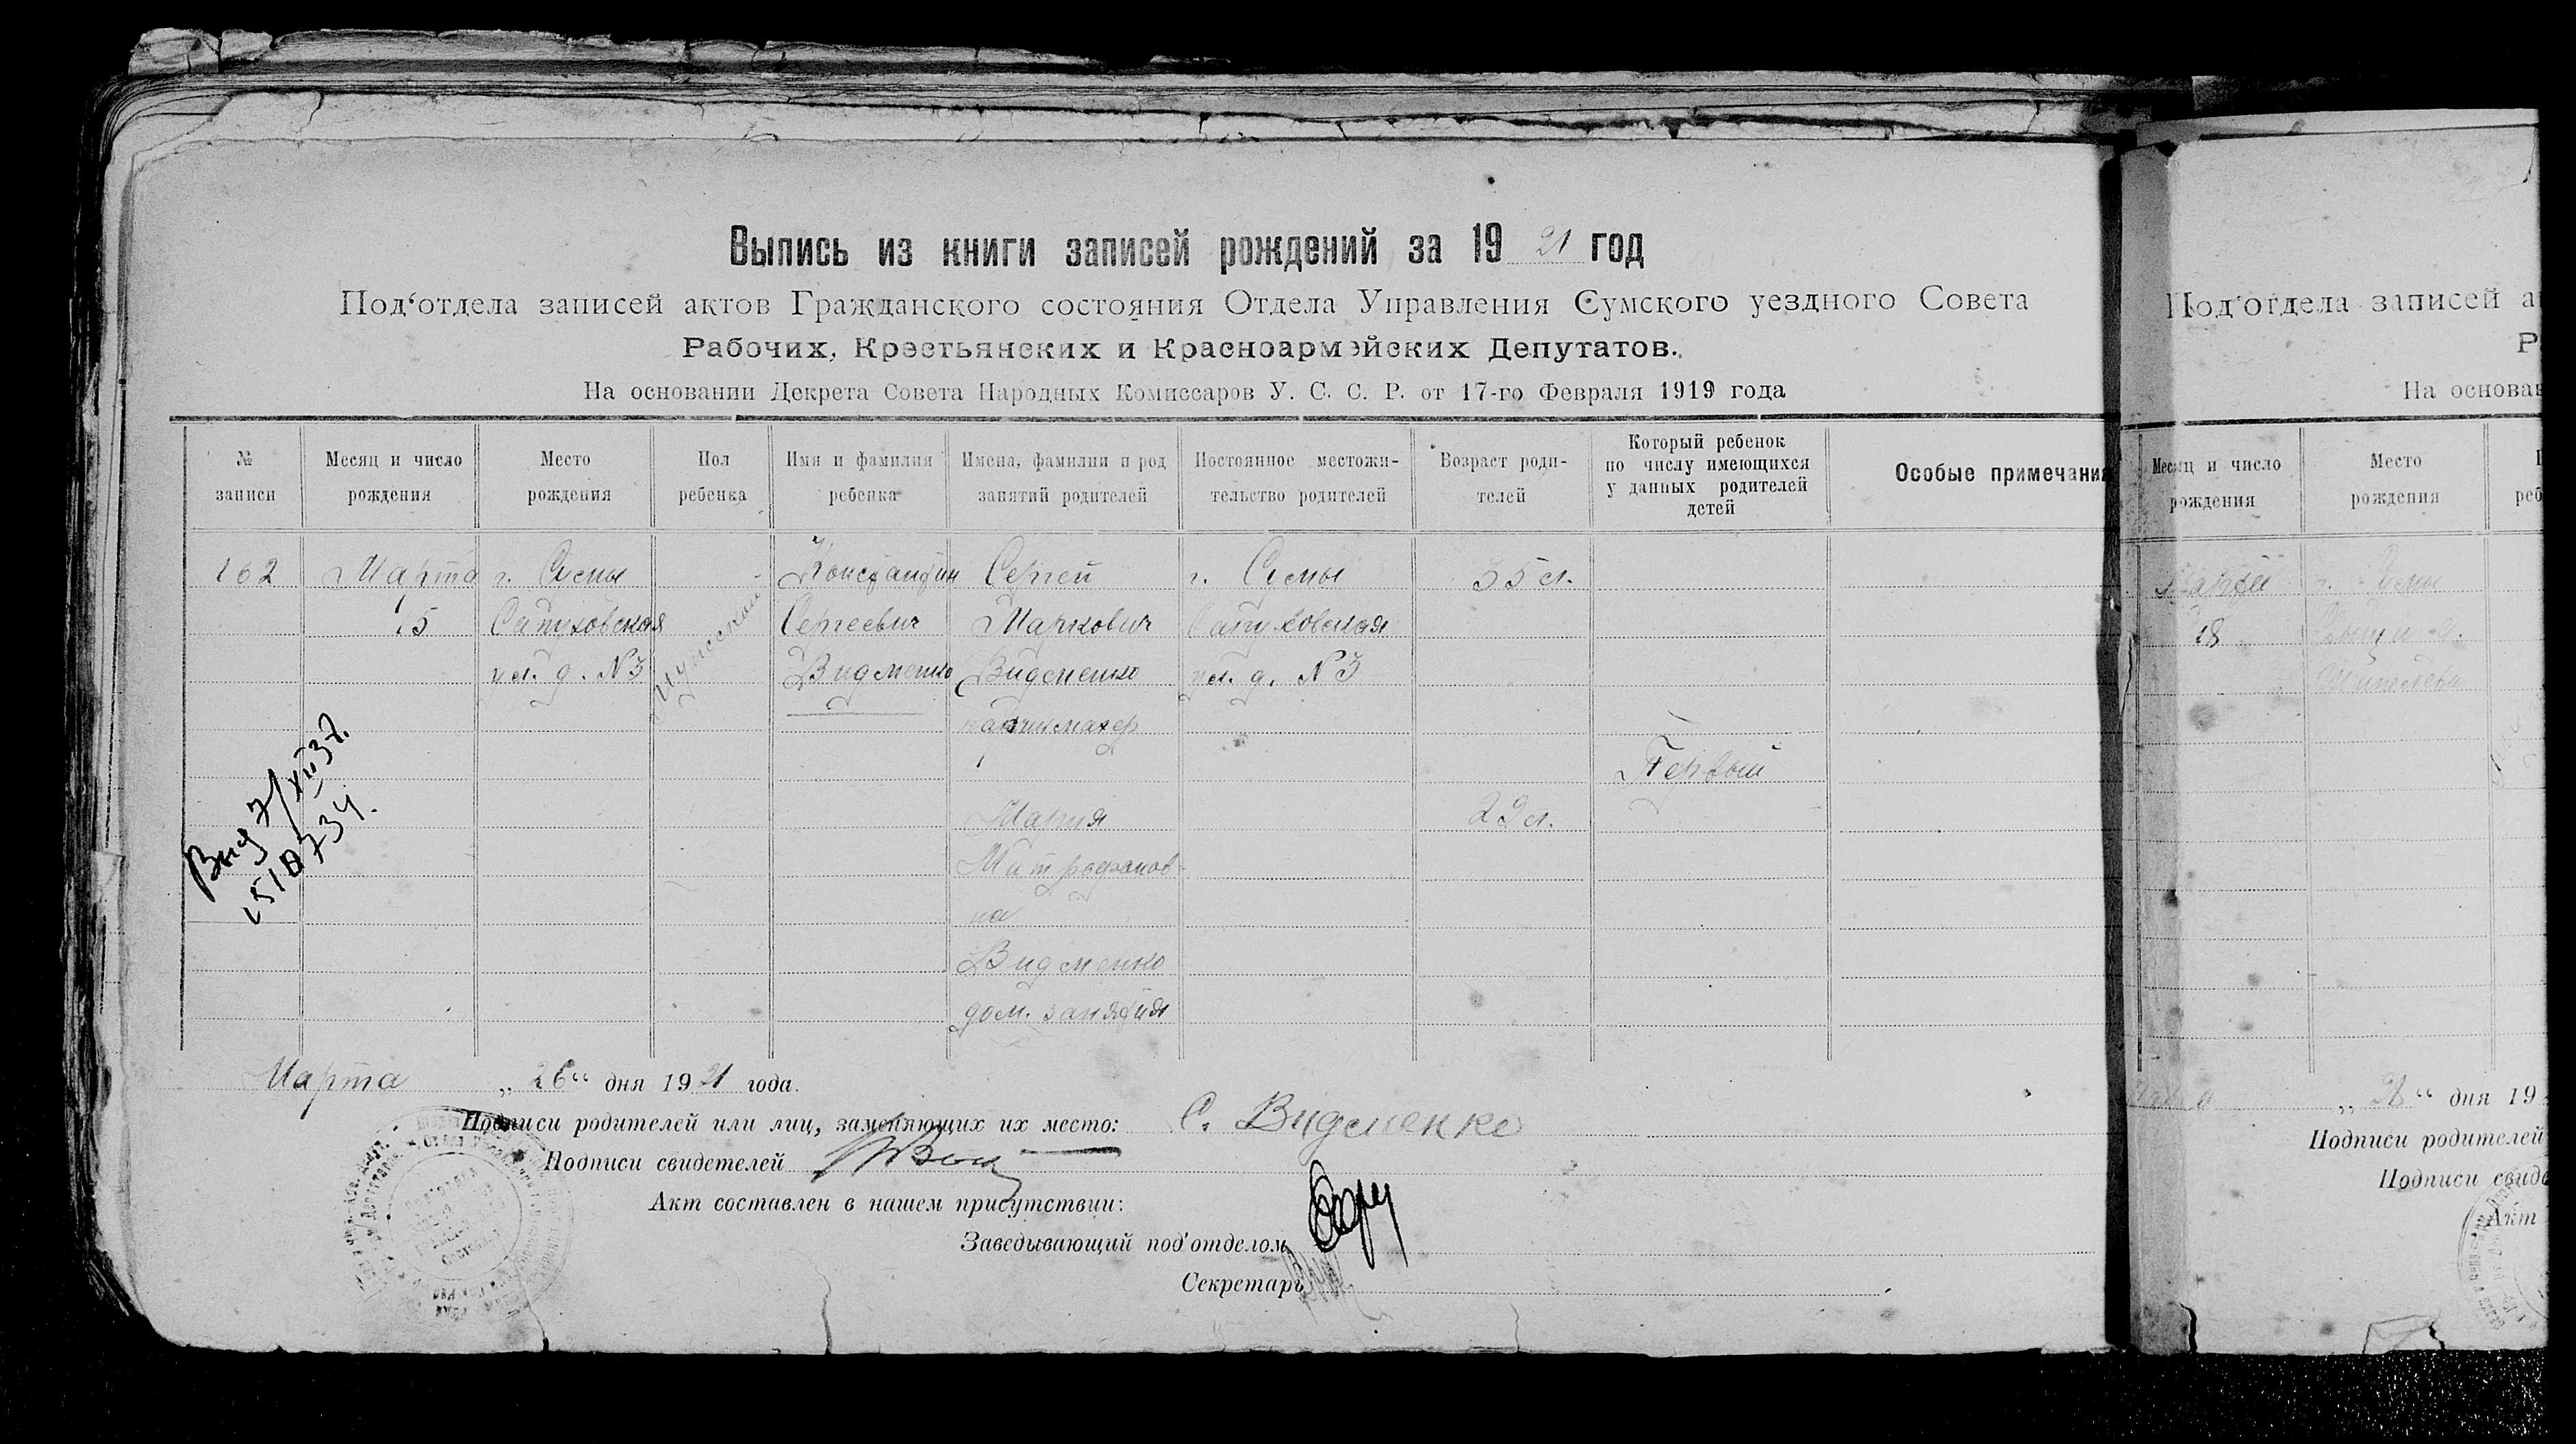 Выпись из книги записей рождений за 1921 год
Под‘отдела записей актов Гражданского состояния Отдела Управления Сумского уездного Совета
Рабочих, Крестьянских и Красноармэйских Депутатов.
На основании Декрета Совета Народных Комиссаров У. С. С. Р. от 17-го Февраля 1919 года
№ записи
Месяц и число рождения
Место рождения
Пол ребенка
Имя и фамилия ребенка
Имена, фамилии и род занятий родителей
Постоянное местожительство родителей
Возраст родителей
Который ребенок по числу имеющихся у данных родителей детей
Особые примечания
162
Марта
15
г. Сумы
Сатуховская
ул. д. N 3
Мужеской
Константин
Сергеевич
Видменко
Сергей
Маркович
Видменко
парикмахер
г. Сумы
Сатуховская
ул. д. N 3
35 л.
Первый
Мария
Митрофанов-
на
Видменко
дом. занятия
29 л.
Выд 7/XII 37.
Марта „ 26 “ дня 1921 года.
Подписи родителей или лиц, заменяющих их место: С. Видменко
Подписи свидетелей
Акт составлен в нашем присутствии:
Заведывающий под‘отделом
Секретарь
Под‘отдела записей
На основан
Месяц и число рождения
Место рождения
18
г. Сумы
дня 19
Подписи родителей
Подписи свиде
Акт